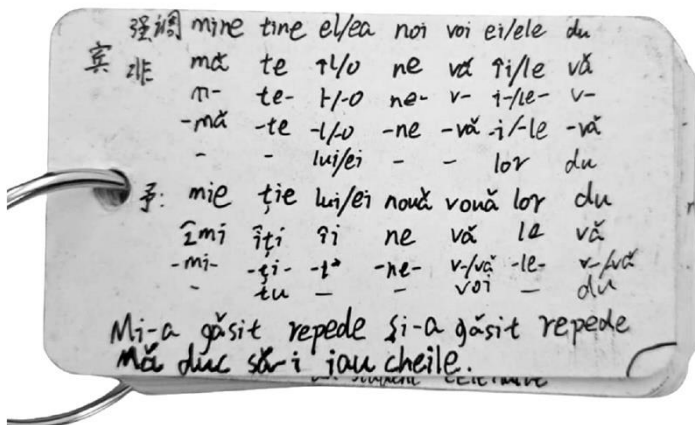 强调 mine tine el/ea noi voi ei/ele du
宾 非 mă te îl/o ne vă îi/le vă
m- te- l-/-o ne- v- i-/le- v-
-mă -te -l/-o -ne -vă -i/-le -vă
- - lui/ei - - lor du
予: mie ție lui/ei nouă vouă lor du
îmi îți îi ne vă le vă
-mi- -ți- -i- -ne- v-/vă -le- v-/vă
- tu - - voi - du
Mi-a găsit repede și-a găsit repede
Mă duc să-i iau cheile.